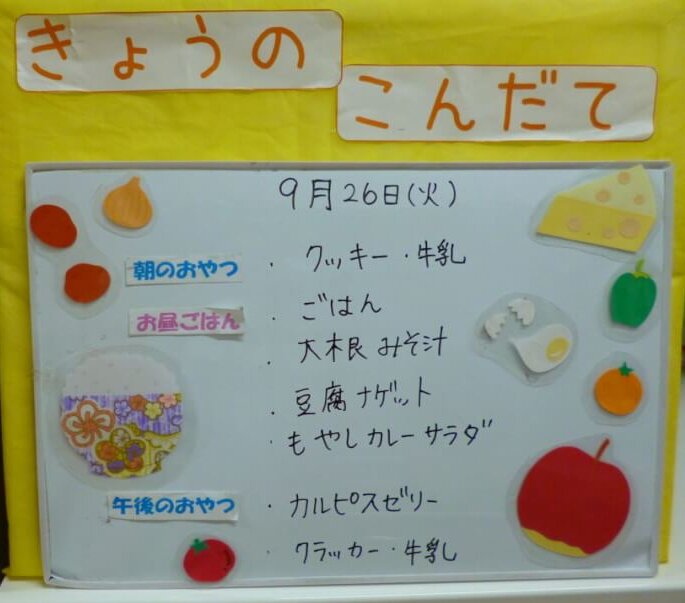 きょうの
こんだて
9月26日(火)
朝のおやつ ・ クッキー・牛乳
お昼ごはん ・ ごはん
・ 大根みそ汁
・ 豆腐ナゲット
・ もやしカレーサラダ
午後のおやつ ・ カルピスゼリー
・ クラッカー・牛乳